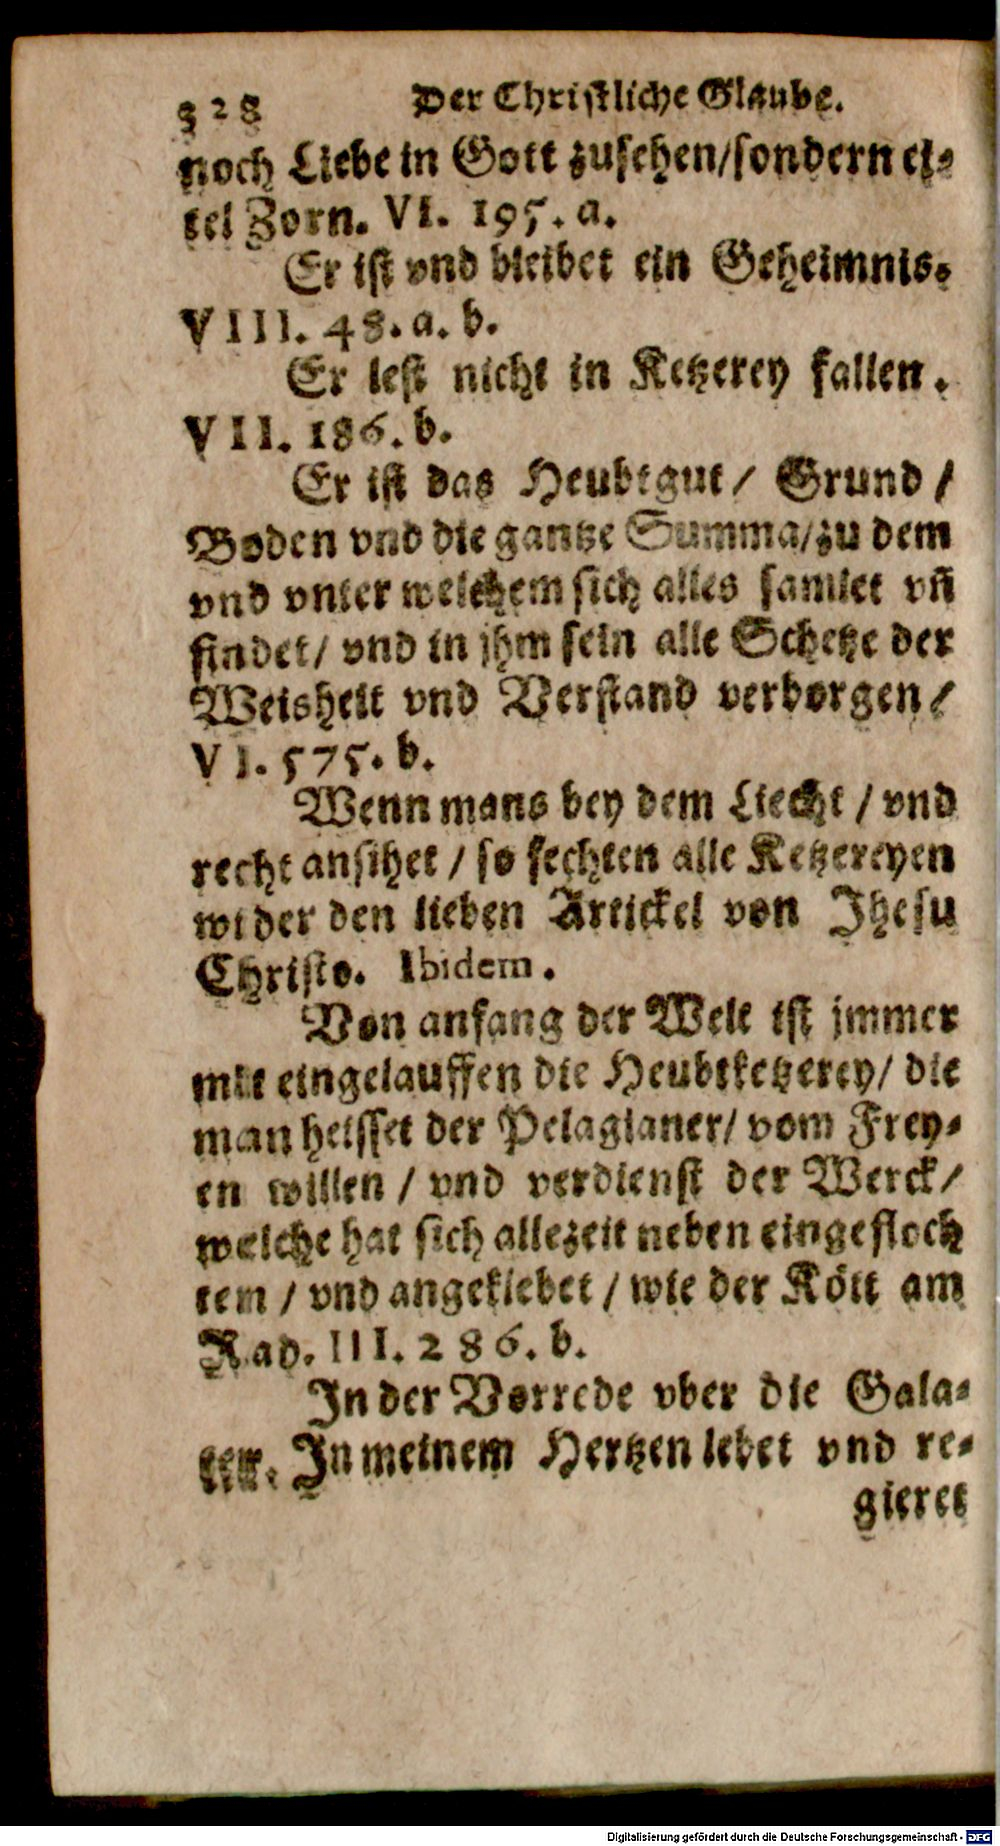 328 Der Christliche Glaube.
noch Liebe in Gott zusehen/sondern ei⸗
tel Zorn. VI. 195. a.
Er ist vnd bleibet ein Geheimnis.
VIII. 48. a. b.
Er lest nicht in Ketzerey fallen.
VII. 186. b.
Er ist das Heubtgut / Grund /
Boden vnd die gantze Summa/zu dem
vnd vnter welchem sich alles samlet vn̄
findet/ vnd in jhm sein alle Schetze der
Weisheit vnd Verstand verborgen /
VI. 575. b.
Wenn mans bey dem Liecht / vnd
recht ansihet / so fechten alle Ketzereyen
wider den lieben Artickel von Jhesu
Christo. Ibidem.
Von anfang der Welt ist jmmer
mit eingelauffen die Heubtketzerey/ die
man heisset der Pelagianer/ vom Frey⸗
en willen / vnd verdienst der Werck/
welche hat sich allezeit neben eingefloch
ten / vnd angeklebet / wie der Kött am
Rad. III. 286. b.
In der Vorrede vber die Gala⸗
ter. In meinem Hertzen lebet vnd re⸗
gieret
Digitalisierung gefördert durch die Deutsche Forschungsgemeinschaft - DFG